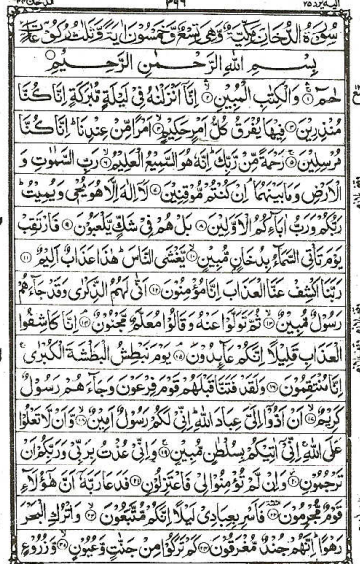 اليه يرد ٢٥
٣٩٦
الدخان ٤٤
سُوْرَةُ الدُّخَانِ مَكِّيَّةٌ وَّهِيَ تِسْعٌ وَّخَمْسُوْنَ اٰيَةً وَّثَلٰثُ رُكُوْعَاتٍ
بِسْمِ اللّٰهِ الرَّحْمٰنِ الرَّحِيْمِ
حٰمٓ ١ وَالْكِتٰبِ الْمُبِيْنِ ٢ اِنَّاۤ اَنْزَلْنٰهُ فِيْ لَيْلَةٍ مُّبٰرَكَةٍ اِنَّا كُنَّا
مُنْذِرِيْنَ ٣ فِيْهَا يُفْرَقُ كُلُّ اَمْرٍ حَكِيْمٍ ٤ اَمْرًا مِّنْ عِنْدِنَا اِنَّا كُنَّا
مُرْسِلِيْنَ ٥ رَحْمَةً مِّنْ رَّبِّكَ اِنَّهٗ هُوَ السَّمِيْعُ الْعَلِيْمُ ٦ رَبِّ السَّمٰوٰتِ وَ
الْاَرْضِ وَمَا بَيْنَهُمَا اِنْ كُنْتُمْ مُّوْقِنِيْنَ ٧ لَاۤ اِلٰهَ اِلَّا هُوَ يُحْيٖ وَيُمِيْتُ
رَبُّكُمْ وَرَبُّ اٰبَآئِكُمُ الْاَوَّلِيْنَ ٨ بَلْ هُمْ فِيْ شَكٍّ يَّلْعَبُوْنَ ٩ فَارْتَقِبْ
يَوْمَ تَاْتِي السَّمَآءُ بِدُخَانٍ مُّبِيْنٍ ١٠ يَّغْشَى النَّاسَ هٰذَا عَذَابٌ اَلِيْمٌ ١١
رَبَّنَا اكْشِفْ عَنَّا الْعَذَابَ اِنَّا مُؤْمِنُوْنَ ١٢ اَنّٰى لَهُمُ الذِّكْرٰى وَقَدْ جَآءَهُمْ
رَسُوْلٌ مُّبِيْنٌ ١٣ ثُمَّ تَوَلَّوْا عَنْهُ وَقَالُوْا مُعَلَّمٌ مَّجْنُوْنٌ ١٤ اِنَّا كَاشِفُوا
الْعَذَابِ قَلِيْلًا اِنَّكُمْ عَآئِدُوْنَ ١٥ يَوْمَ نَبْطِشُ الْبَطْشَةَ الْكُبْرٰى
اِنَّا مُنْتَقِمُوْنَ ١٦ وَلَقَدْ فَتَنَّا قَبْلَهُمْ قَوْمَ فِرْعَوْنَ وَجَآءَهُمْ رَسُوْلٌ
كَرِيْمٌ ١٧ اَنْ اَدُّوْۤا اِلَيَّ عِبَادَ اللّٰهِ اِنِّيْ لَكُمْ رَسُوْلٌ اَمِيْنٌ ١٨ وَّاَنْ لَّا تَعْلُوْا
عَلَى اللّٰهِ اِنِّيْۤ اٰتِيْكُمْ بِسُلْطٰنٍ مُّبِيْنٍ ١٩ وَاِنِّيْ عُذْتُ بِرَبِّيْ وَرَبِّكُمْ اَنْ
تَرْجُمُوْنِ ٢٠ وَاِنْ لَّمْ تُؤْمِنُوْا لِيْ فَاعْتَزِلُوْنِ ٢١ فَدَعَا رَبَّهٗۤ اَنَّ هٰۤؤُلَآءِ
قَوْمٌ مُّجْرِمُوْنَ ٢٢ فَاَسْرِ بِعِبَادِيْ لَيْلًا اِنَّكُمْ مُّتَّبَعُوْنَ ٢٣ وَاتْرُكِ الْبَحْرَ
رَهْوًا اِنَّهُمْ جُنْدٌ مُّغْرَقُوْنَ ٢٤ كَمْ تَرَكُوْا مِنْ جَنّٰتٍ وَّعُيُوْنٍ ٢٥ وَّزُرُوْعٍ